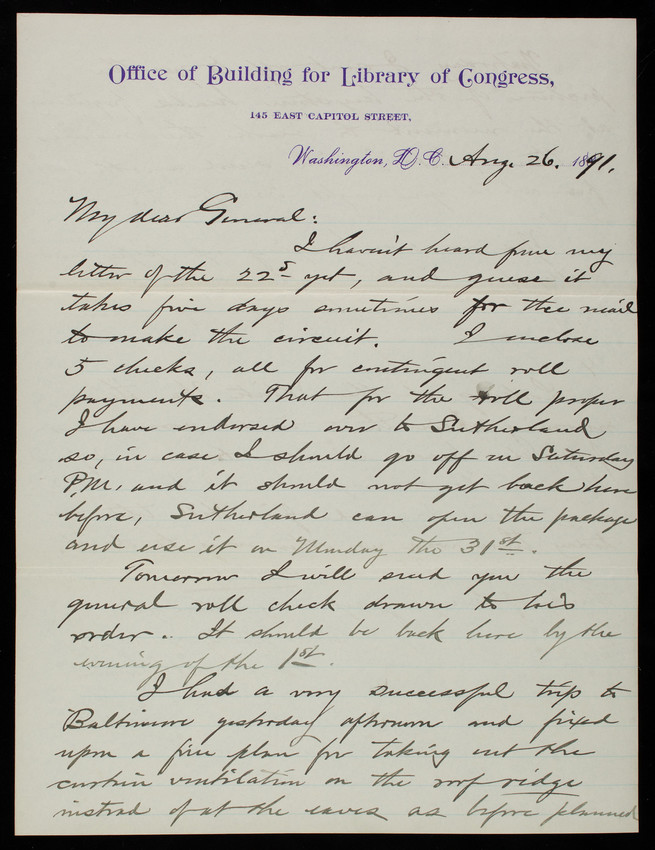 Office of Building for Library of Congress,
145 EAST CAPITOL STREET,
Washington, D. C. Aug. 26. 1891.
My dear General:
I haven't heard from my
letter of the 22d yet, and guess it
takes five days sometimes for the mail
to make the circuit. I enclose
5 checks, all for contingent roll
payments. That for the roll proper
I have endorsed over to Sutherland
so, in case I should go off on Saturday
P.M. and it should not get back here
before, Sutherland can open the package
and use it on Monday the 31st.
Tomorrow I will send you the
general roll check drawn to his
order. It should be back here by the
evening of the 1st.
I had a very successful trip to
Baltimore yesterday afternoon and fixed
upon a fine plan for taking out the
curtain ventilation on the roof ridge
instead of at the eaves as before planned